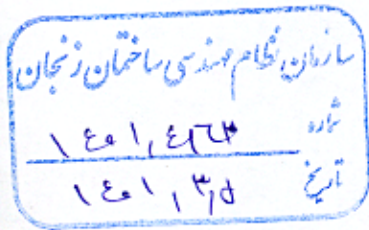 سازمان نظام مهندسی ساختمان زنجان
شماره
تاریخ ۱۴۰۱,۳,۵